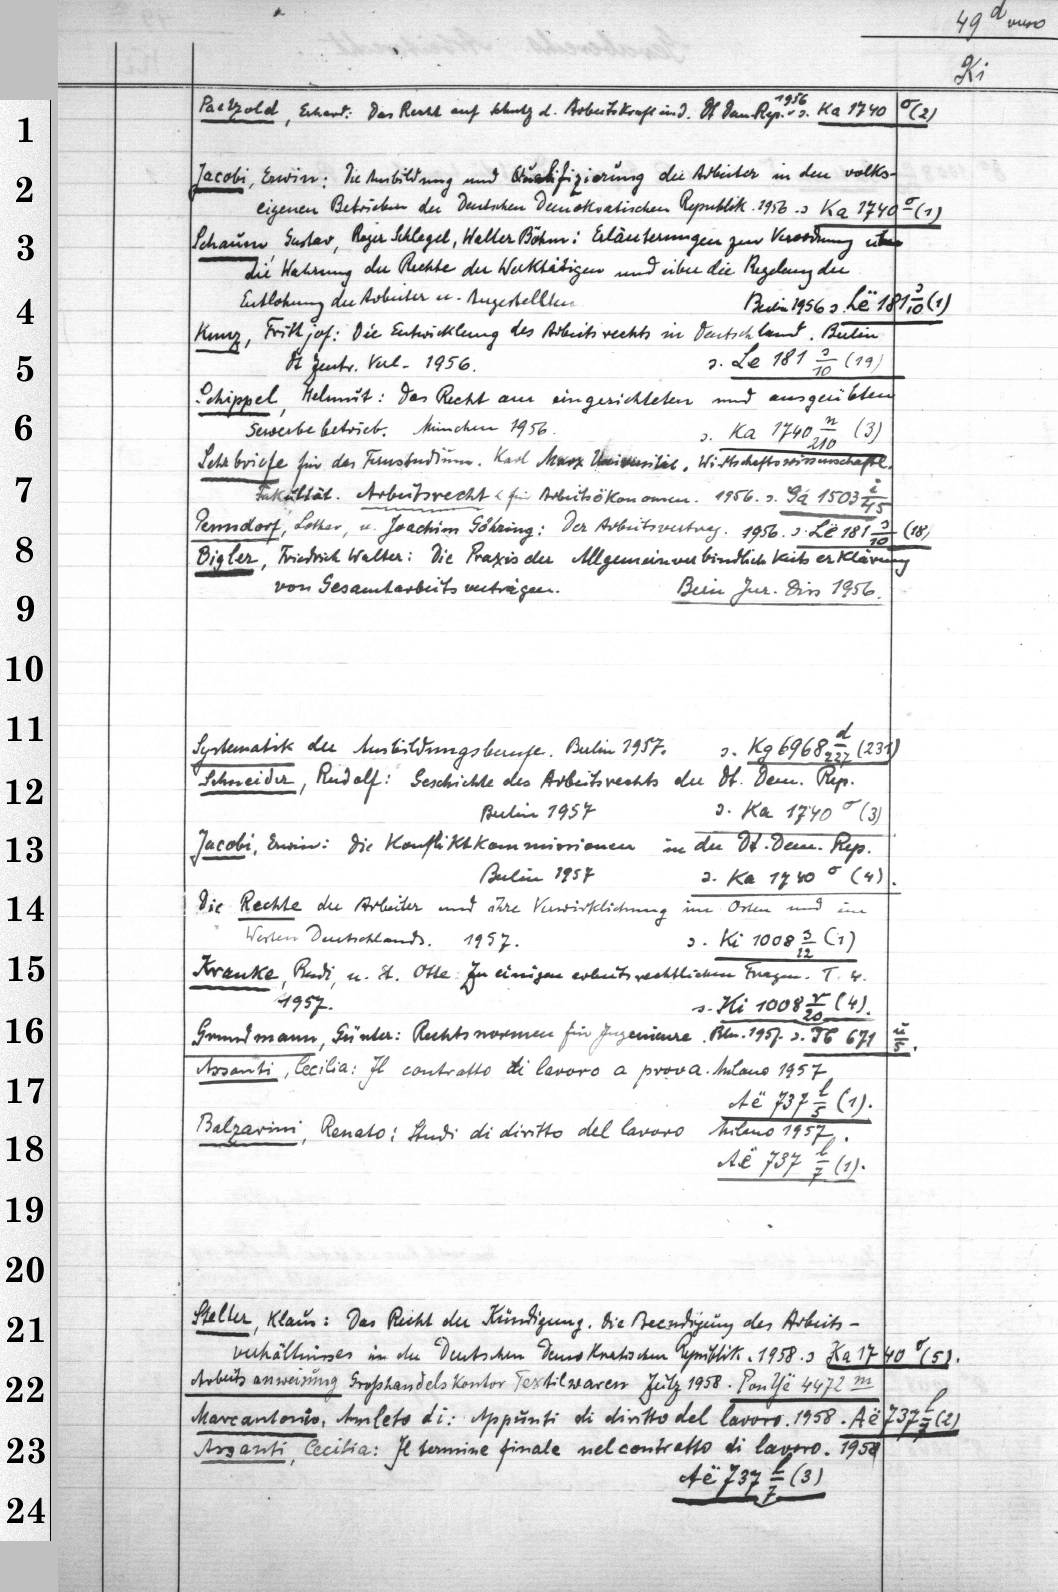 49 d
Ki
1 Paetzold, Erhard: Das Recht auf Schutz d. Arbeitskraft in d. Dt Dem. Rep. 1956 s. Ka 1740 σ (2)
2 Jacobi, Erwin: Die Ausbildung und Qualifizierung der Arbeiter in den volks-
eigenen Betrieben der Deutschen Demokratischen Republik. 1956. s Ka 1740 σ (1)
3 Schaum, Gustav, Roger Schlegel, Walter Böhm: Erläuterungen zur Verordnung über
die Wahrung der Rechte der Werktätigen und über die Regelung der
4 Entlohnung der Arbeiter u. Angestellten Berlin 1956 s. Lë 181 s/10 (1)
Kunz, Frithjof: Die Entwicklung des Arbeitsrechts in Deutschland. Berlin
5 Dt Zentr. Verl. 1956. s. Le 181 s/10 (19)
Schippel, Helmut: Das Recht am eingerichteten und ausgeübten
6 Gewerbebetrieb. München 1956. s. Ka 1740 n/210 (3)
Lehrbriefe für das Fernstudium. Karl Marx Universität, Wirtschaftswissenschaftl.
7 Fakultät. Arbeitsrecht für Arbeitsökonomen. 1956. s. Gá 1503 i/45
Penndorf, Lothar, u. Joachim Göhring: Der Arbeitsvertrag. 1956 s. Lë 181 s/10 (18)
8 Bigler, Friedrich Walter: Die Praxis der Allgemeinverbindlichkeitserklärung
9 von Gesamtarbeitsverträgen. Bern Jur. Diss 1956.
10
11 Systematik der Ausbildungsberufe. Berlin 1957. s. Kg 6968 d/227 (231)
12 Schneider, Rudolf: Geschichte des Arbeitsrechts der Dt. Dem. Rep.
Berlin 1957 s. Ka 1740 σ (3)
13 Jacobi, Erwin: Die Konfliktkommissionen in der Dt. Dem. Rep.
Berlin 1957 s. Ka 1740 σ (4).
14 Die Rechte der Arbeiter und ihre Verwirklichung im Osten und im
Westen Deutschlands. 1957. s. Ki 1008 s/12 (1)
15 Kranke, Rudi, u. H. Otte: Zu einigen arbeitsrechtlichen Fragen. T. 4.
1957. s. Ki 1008 r/20 (4).
16 Grundmann, Günter: Rechtsnormen für Ingenieure. Bln. 1957. s. Tb 671 ü/5.
Assanti, Cecilia: Il contratto di lavoro a prova. Milano 1957
17 Aë 737 l/5 (1).
Balzarini, Renato: Studi di diritto del lavoro Milano 1957.
18 Aë 737 l/7 (1).
19
20
21 Steller, Klaus: Das Recht der Kündigung. Die Beendigung des Arbeits-
verhältnisses in der Deutschen Demokratischen Republik. 1958. s Ka 1740 σ (5).
22 Arbeitsanweisung Großhandelskontor Textilwaren Zeitz 1958. Pon Yë 4472 m
Marcantonio, Amleto di: Appunti di diritto del lavoro. 1958. Aë 737 l/7 (2)
23 Assanti, Cecilia: Il termine finale nel contratto di lavoro. 1958
Aë 737 l/7 (3)
24